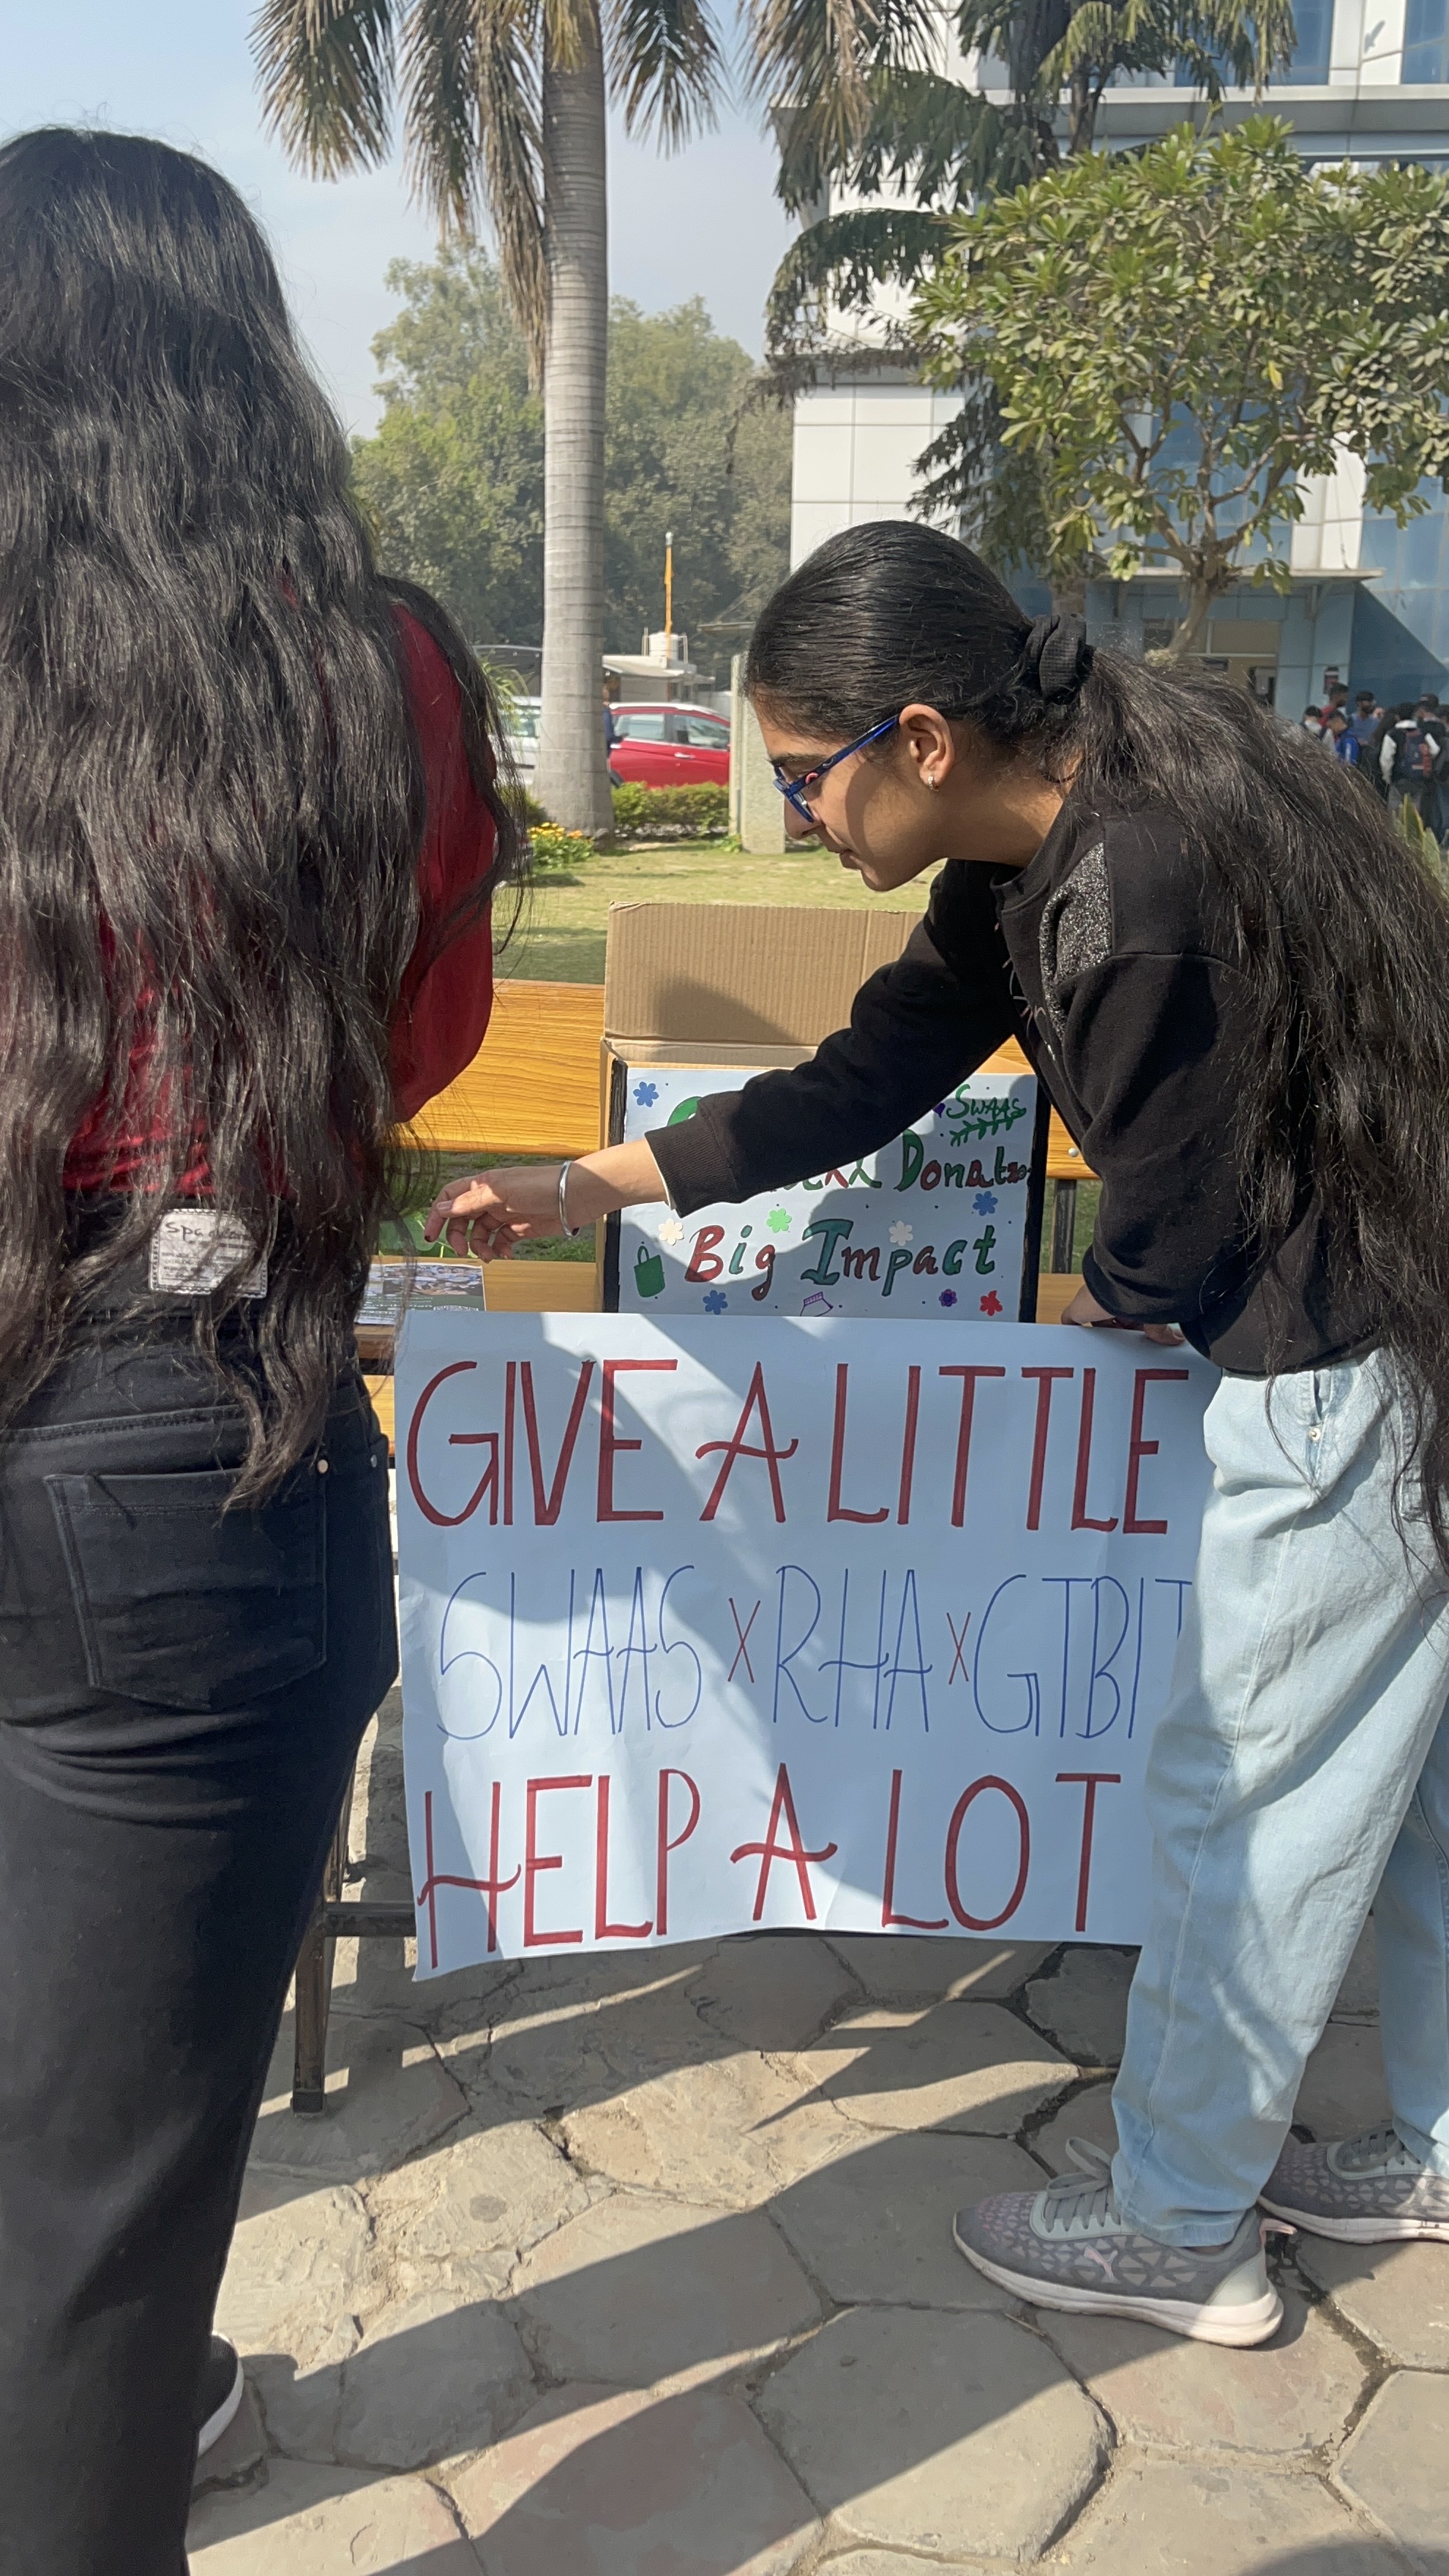 SWAAS
Donat
Big Impact
GIVE A LITTLE
SWAAS X RHA X GTBIT
HELP A LOT